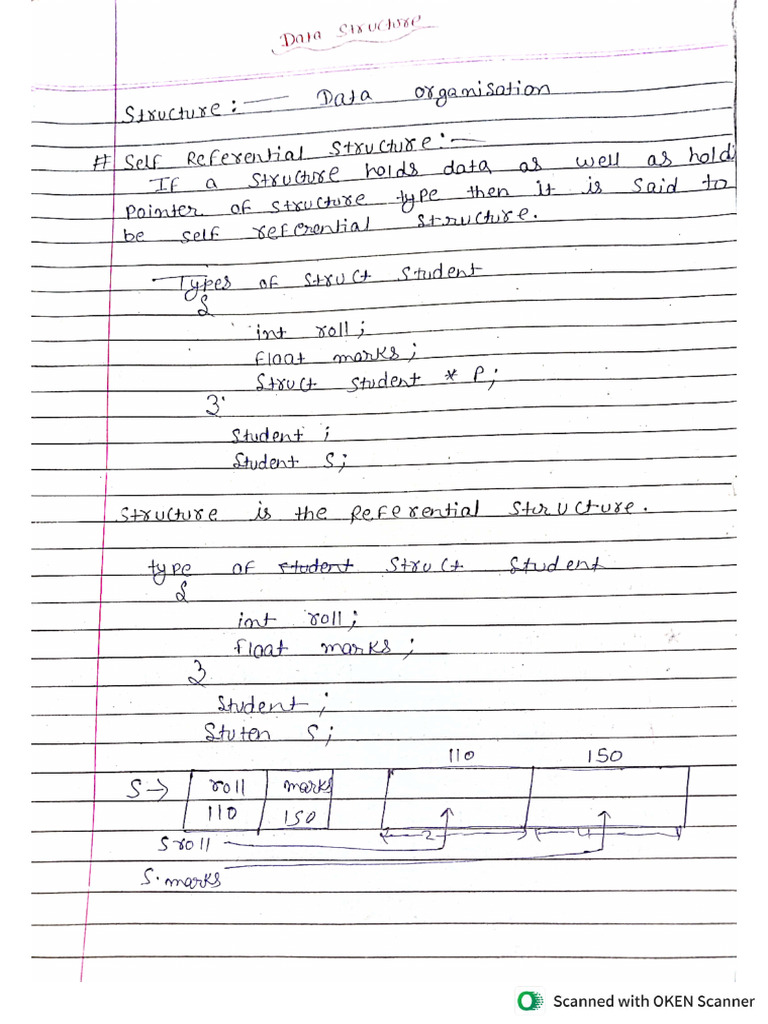 Data Structure
Structure:— Data organisation
# Self Referential Structure:—
If a structure holds data as well as hold
pointer of structure type then it is said to
be self referential structure.
Types of struct student
{
int roll;
float marks;
struct student * P;
}
student ;
student S;
Structure is the referential structure.
type of student struct student
{
int roll;
float marks;
}
student ;
Stuten S;
110 150
S→ roll marks
110 150
2 4
S roll
S. marks
Scanned with OKEN Scanner